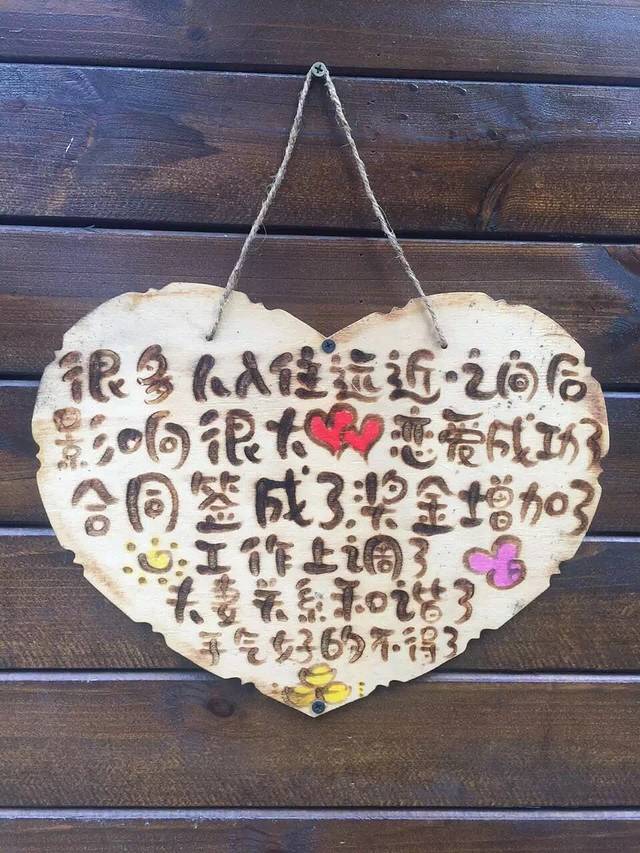 很多人入住远近·之间后
影响很大恋爱成功了
合同签成了奖金增加了
工作上调了
夫妻关系和谐了
手气好的不得了